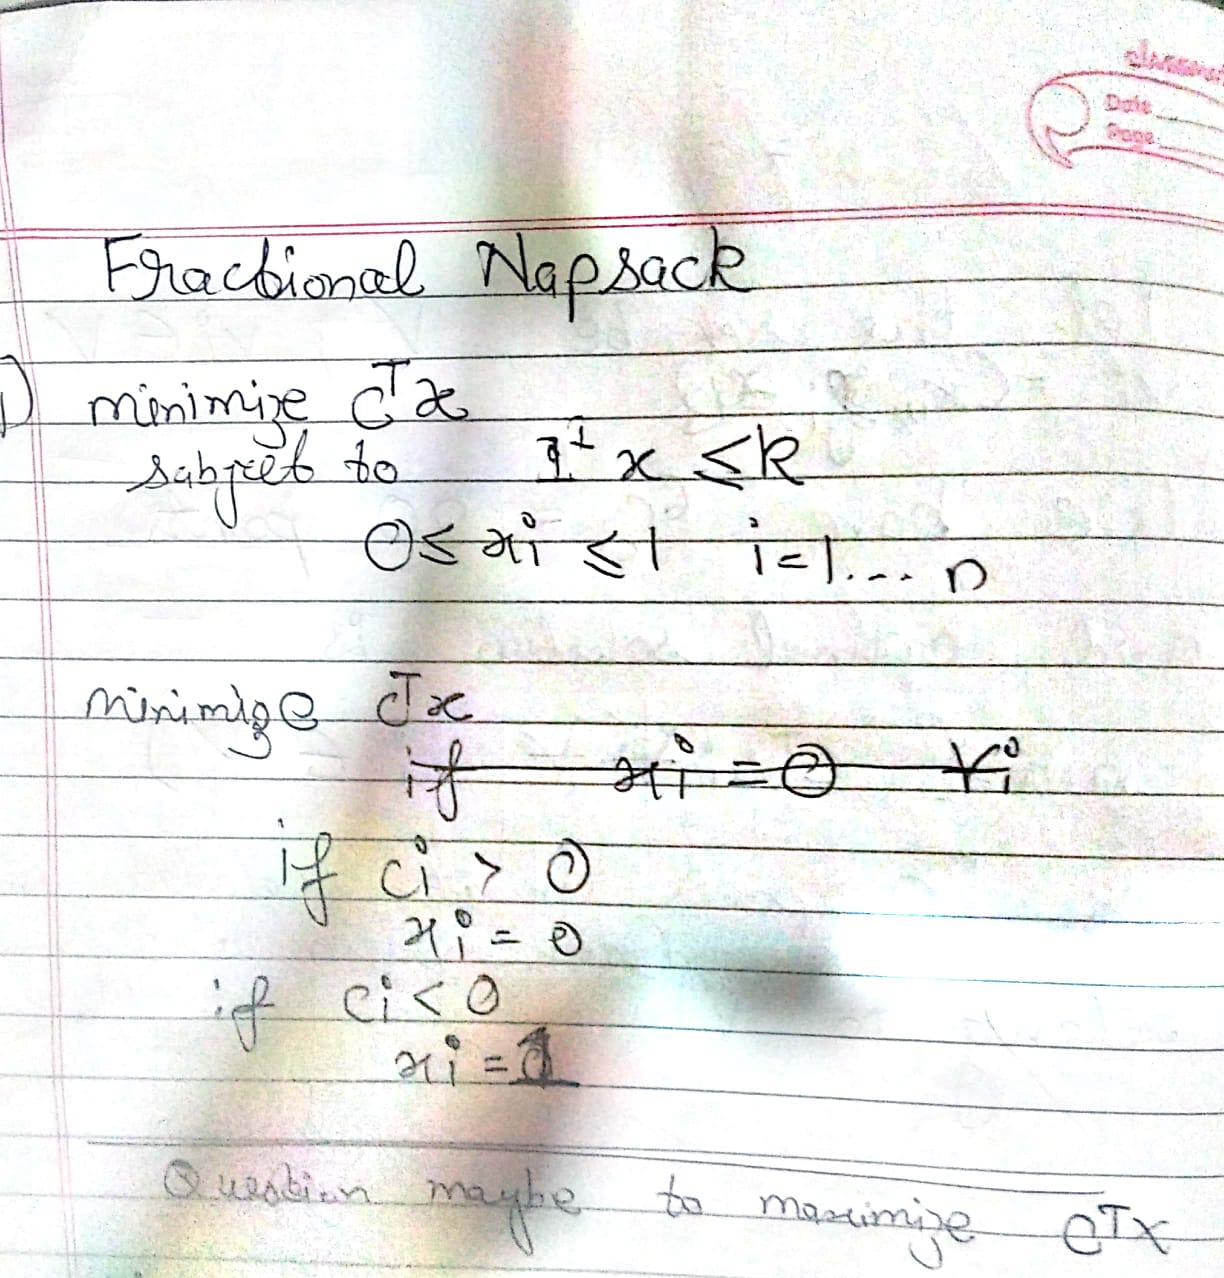 classmate
Date
Page
Fractional Napsack
1) minimize cᵀx
subject to 1ᵀx ≤ k
0 ≤ xi ≤ 1 i=1... n
minimize cᵀx
if xi = 0 ∀i
if ci > 0
xi = 0
if ci < 0
xi = 1
Question maybe to maximize cᵀx